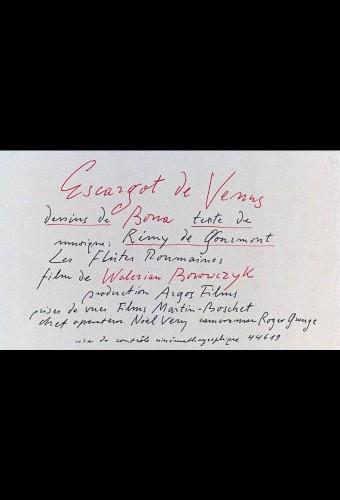 Escargot de Venus
dessins de Bona texte de
musique: Rémy de Gourmont
Les Flûtes Roumaines
film de Walerian Borowczyk
production Argos Films
prises de vues Films Martin-Boschet
chef operateur Noël Very cameraman Roger George
visa de contrôle cinématographique 44619